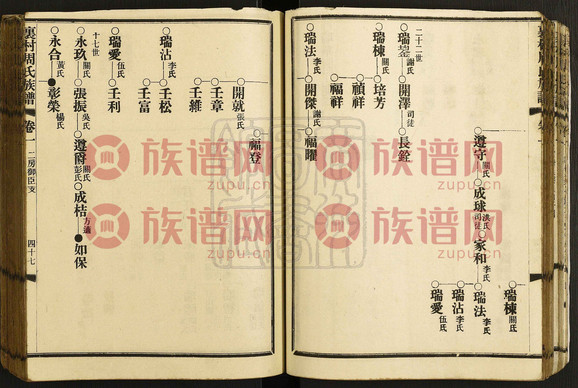 遵守關氏 成球洪氏司徒 家和李氏 瑞棟關氏
瑞法李氏
瑞沾李氏
瑞愛伍氏
二十二世
瑞鋆謝氏 開澤司徒 長銓
瑞棟關氏 培芳
禎祥
福祥
瑞法李氏 開傑謝氏 福曜
福登
開就張氏
壬章
壬維
瑞沾李氏 壬松
壬富
瑞愛伍氏 壬利
十七世
永玖關氏 張振吳氏 遵爵關氏彭氏 成桔方氏 如保
永合黃氏 彰榮楊氏
裏村周氏族譜
卷一
二房御臣支
四十七
族谱网
zupu.cn
族谱网
zupu.cn
族谱网
zupu.cn
族谱网
zupu.cn